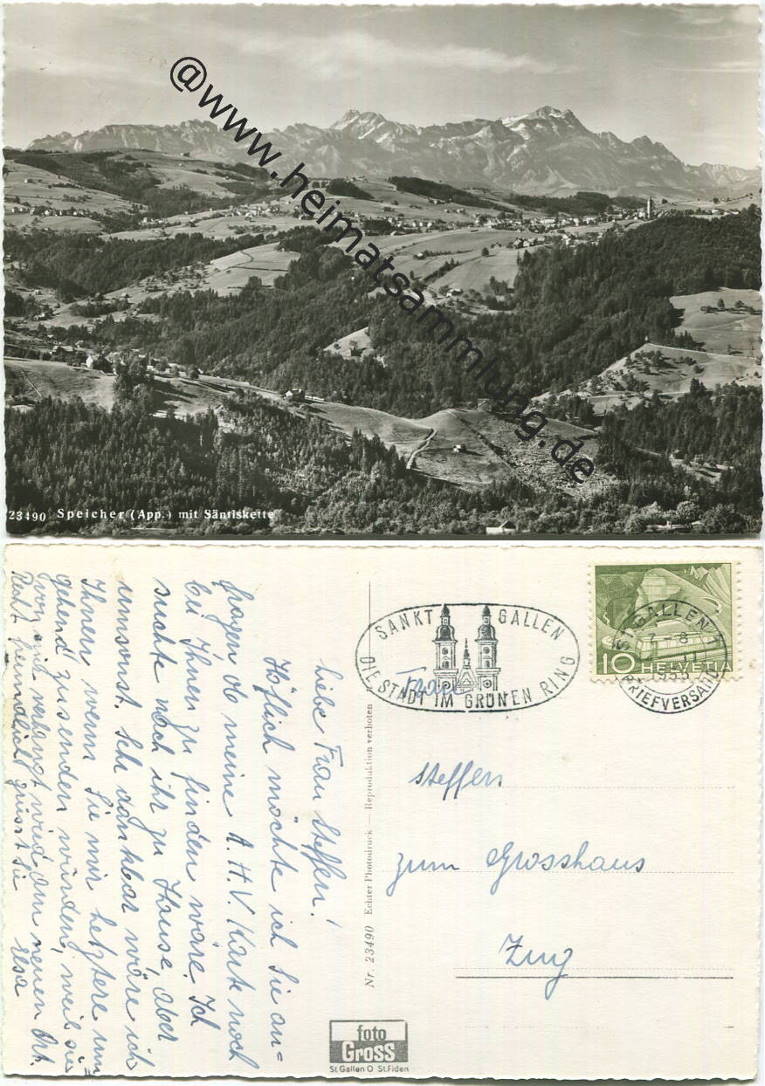 @www.heimatsammlung.de
23490 Speicher (App.) mit Säntiskette
liebe Frau Steffen!
Höflich möchte ich Sie an=
fragen ob meine A.H.V. Kark noch
bei Ihnen zu finden wäre. Ich
suchte nach ihr zu Hause, aber
umsonst. Ich dankbar wäre ich
Ihnen wenn Sie mir letztere um
gehend zusenden würden, weil sie
von mir verlangt wird am neuen Ort.
Recht heimelicht grüsst Sie
Nr. 23490 Echter Photodruck — Reproduktion verboten
SANKT GALLEN
DIE STADT IM GRÜNEN RING
ST. GALLEN 1
BRIEFVERSAND
10 HELVETIA
Frau
Steffen
zum Grosshaus
Zug
foto
GROSS
St. Gallen O St. Fiden